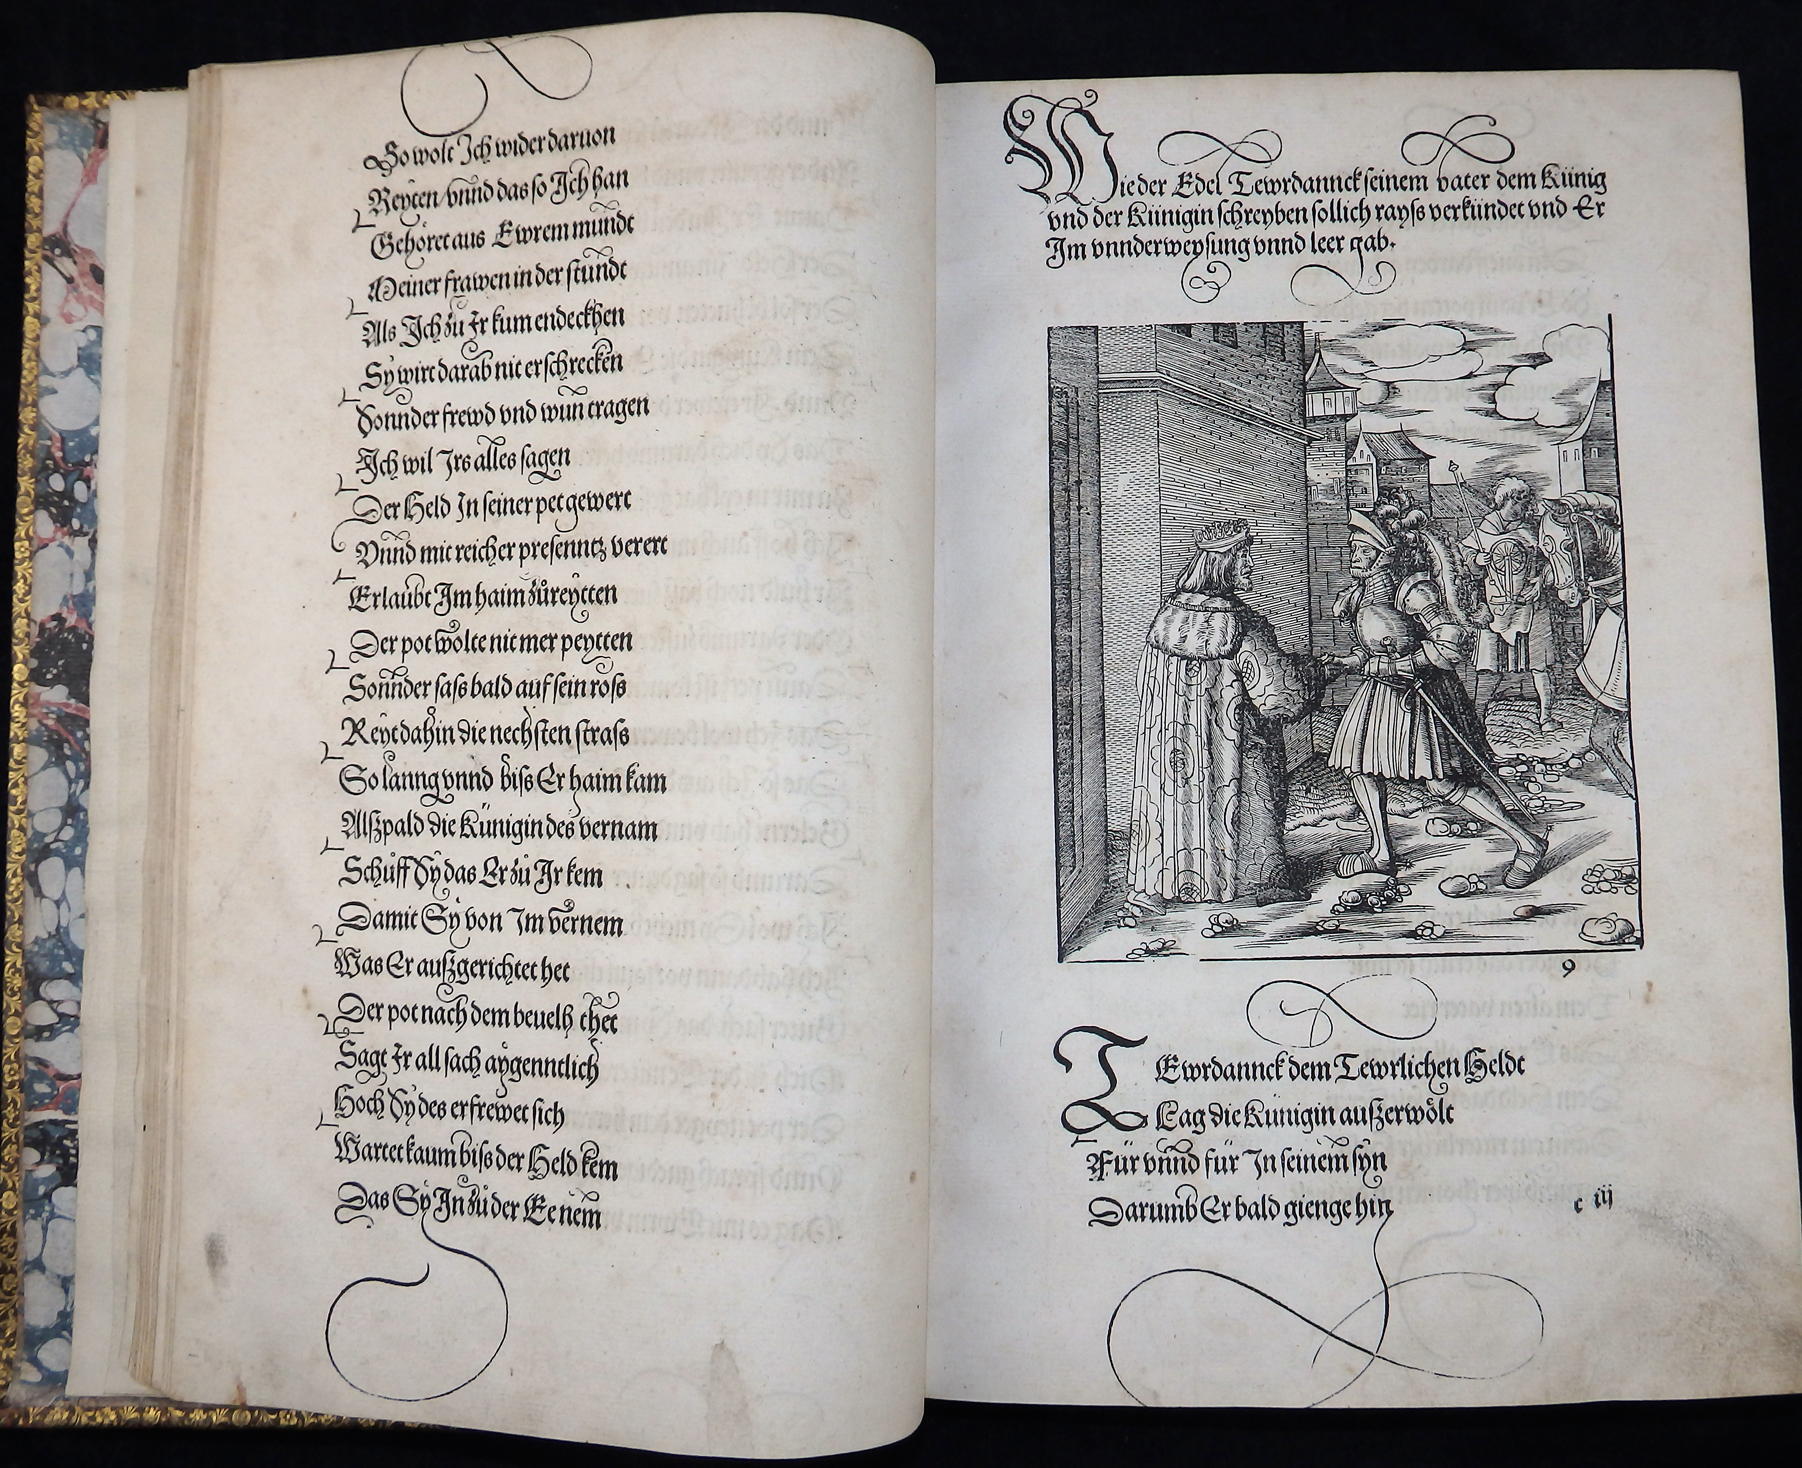 So wolt Ich wider daruon
Reyten / vnnd das so Ich han
Gehöret aus Ewrem mundt
Meiner frawen in der stundt
Als Ich zu Ir kum endeckhen
Sy wirt darab nit erschrecken
Sonnder frewd vnd wun tragen
Ich wil Irs alles sagen
Der Held In seiner pet gewert
Vnnd mit reicher presenntz verert
Erlaubt Im haim zůreytten
Der pot wolte nit mer peytten
Sonnder sass bald auf sein ross
Reyt dahin die nechsten strass
So lanng vnnd biss Er haim kam
Alßpald die Künigin des vernam
Schůff Sy das Er zů Ir kem
Damit Sy von Im vernem
Was Er außgerichtet het
Der pot nach dem beuelh thet
Sagt Ir all sach aygenntlich
Hoch Sy des erfrewet sich
Wartet kaum biss der Held kem
Das Sy In zů der Ee nem
Wie der Edel Tewrdannck seinem vater dem Künig
vnd der Künigin schreyben sollich rayss verkündet vnd Er
Im vnnderweysung vnnd leer gab.
9
TEwrdannck dem Tewrlichen Heldt
Lag die Künigin außerwölt
Für vnnd für In seinem syn
Darumb Er bald gienge hin
c iij